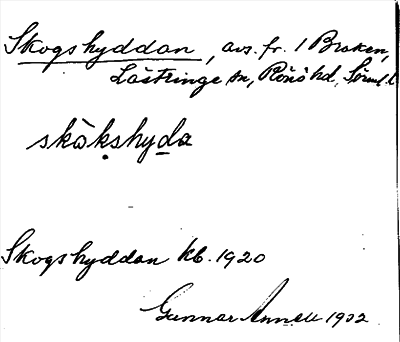 Skogshyddan, avs. fr. 1 Broken,
Lästringe sn, Rönö hd, Sörml. l.
skòkshyda
Skogshyddan kb. 1920
Gunnar Annell 1932